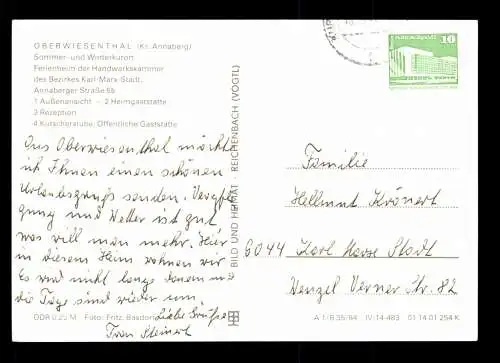 OBERWIESENTHAL (Kr. Annaberg)
Sommer- und Winterkurort
Ferienheim der Handwerkskammer
des Bezirkes Karl-Marx-Stadt,
Annaberger Straße 5b
1 Außenansicht – 2 Heimgaststätte
3 Rezeption
4 Kutscherstube, Öffentliche Gaststätte
Aus Oberwiesenthal möchte
ich Ihnen einen schönen
Urlaubsgruß senden. Verpfle
gung und Wetter ist gut
was will man mehr. Hier
in diesem Heim wohnen wir
Es wird nicht lange dauern und
die Tage sind wieder um
Liebe Grüße
Frau Steinert
DDR 0,20 M Foto: Fritz, Basdorf
BILD UND HEIMAT REICHENBACH (VOGTL)
10
Familie
Hellmut Krönert
6044 Karl Marx Stadt
Wenzel Verner Str. 82
A 1/B 35/84 IV-14-483 01 14 01 254 K